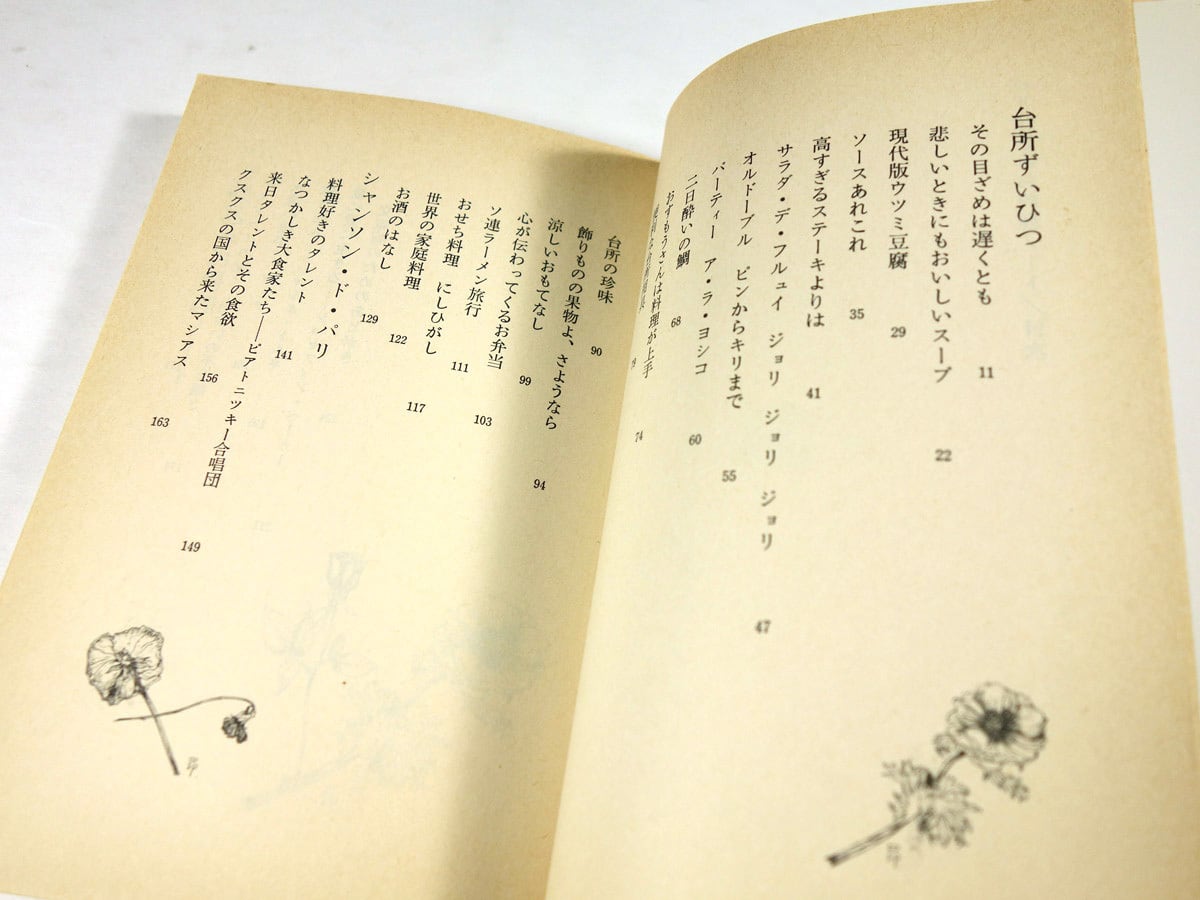 台所ずいひつ
その目ざめは遅くとも 11
悲しいときにもおいしいスープ 22
現代版ウツミ豆腐 29
ソースあれこれ 35
高すぎるステーキよりは 41
サラダ・デ・フルュイ ジョリ ジョリ ジョリ 47
オルドーブル ピンからキリまで 55
パーティー ア・ラ・ヨシコ 60
二日酔いの鯛 68
おすもうさんは料理が上手 74
台所の珍味 90
飾りものの果物よ、さようなら 94
涼しいおもてなし 99
心が伝わってくるお弁当 103
ソ連ラーメン旅行 111
おせち料理 にしひがし 117
世界の家庭料理 122
お酒のはなし 129
シャンソン・ド・パリ
料理好きのタレント 141
なつかしき大食家たち――ピアトニツキー合唱団 149
来日タレントとその食欲 156
クスクスの国から来たマシアス 163